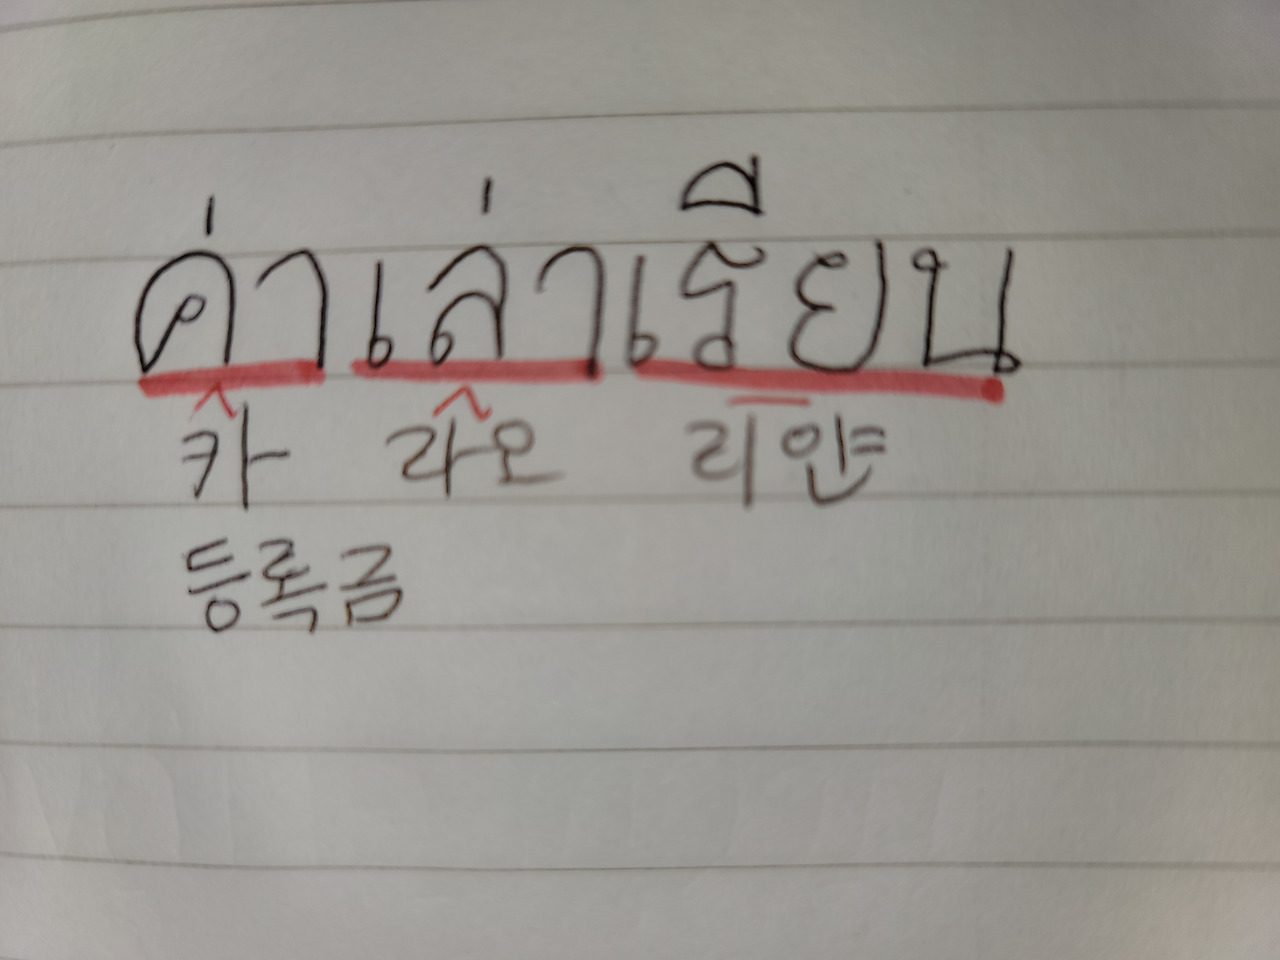 ค่าเล่าเรียน
카 라오 리얀=
등록금